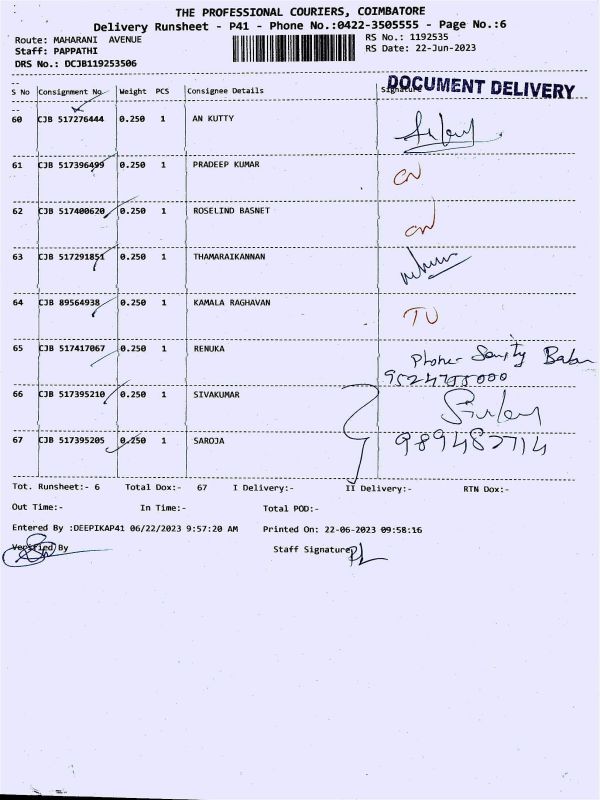 THE PROFESSIONAL COURIERS, COIMBATORE
Delivery Runsheet - P41 - Phone No.:0422-3505555 - Page No.:6
Route: MAHARANI AVENUE RS No.: 1192535
Staff: PAPPATHI RS Date: 22-Jun-2023
DRS No.: DCJB119253506
DOCUMENT DELIVERY
S No Consignment No Weight PCS Consignee Details Signature
60 CJB 517276444 0.250 1 AN KUTTY
61 CJB 517396499 0.250 1 PRADEEP KUMAR CN
62 CJB 517400620 0.250 1 ROSELIND BASNET CN
63 CJB 517291851 0.250 1 THAMARAIKANNAN
64 CJB 89564938 0.250 1 KAMALA RAGHAVAN TU
65 CJB 517417067 0.250 1 RENUKA
66 CJB 517395210 0.250 1 SIVAKUMAR
67 CJB 517395205 0.250 1 SAROJA
Tot. Runsheet:- 6 Total Dox:- 67 I Delivery:- II Delivery:- RTN Dox:-
Out Time:- In Time:- Total POD:-
Entered By :DEEPIKAP41 06/22/2023 9:57:20 AM Printed On: 22-06-2023 09:58:16
Verified By Staff Signature